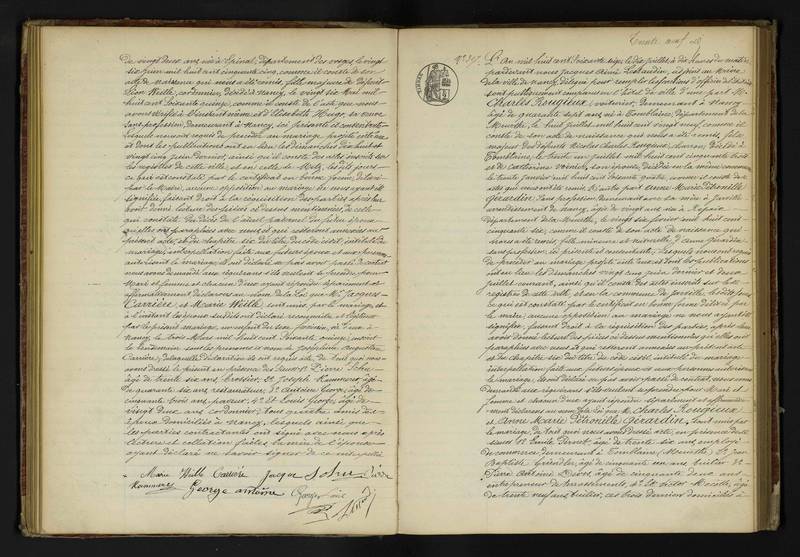 de vingt deux ans né à Epinal, département des vosges, le vingt
six juin mil huit cent cinquante cinq, comme il conste de son
acte de naissance qui nous a été remis, fille majeure de
Léon Wille, cordonnier, décédé à nancy, le vingt six mai mil
huit cent soixante quinze, comme il conste de l'acte que nous
et d'Elisabeth Hugo, sa veuve
sans profession, demeurant à nancy, ici présente et consentante
lesquels nous ont requis de procéder au mariage projeté entre eux
et dont les publications ont eu lieu les dimanches dix huit et
vingt cinq juin dernier, ainsi qu'il conste des actes inscrits sur
les registres de cette ville et sur celle de Metz,
ce qui est constaté par le certificat en bonne forme, délivré
par le Maire, aucune opposition au mariage ne nous ayant été
signifiée, faisant droit à la réquisition des parties, après leur
avoir donné lecture des pièces ci dessus mentionnées, de celle
qui constate
qu'elles ont paraphées avec nous et qui resteront annexées au
présent acte, et du chapitre six du titre du code civil, intitulé du
mariage, interpellation faite aux futurs époux et aux personnes
autorisant le mariage, ils ont déclaré ne pas avoir passé de contrat
nous avons demandé aux requérants s'ils veulent se prendre pour
Mari et femme et chacun d'eux ayant répondu séparément et
affirmativement déclarons au nom de la Loi que M. Jacques
Carrière, et Marie Wille sont unis par le mariage, et
à l'instant les époux susdits ont déclaré reconnaître et légitimer
par le présent mariage, un enfant du sexe féminin, né d'eux à
nancy, le trois Mars mil huit cent soixante quinze, inscrit
le lendemain sous les prénoms et nom de Joséphine, Augustine
Carrière, de laquelle déclaration ils ont requis acte, de tout quoi nous
avons dressé le présent en présence des Sieurs 1° Pierre
âgé de trente six ans, brossier, 2° Joseph Kammerer, âgé
de quarante six ans, restaurateur, 3° Antoine George, âgé de
cinquante trois ans, paveur, 4° et Louis George, âgé de
vingt deux ans, cordonnier, tous quatre amis des
époux, domiciliés à nancy, lesquels, ainsi que
les parties contractantes ont signé avec nous après
lecture et collation faites, la mère de l'épouse
ayant déclaré ne savoir signer de ce interpellée
Marie Wille Carrière Jacque
Kammerer George antoine George
Trente neuf
N° 39.
L'An mil huit cent soixante seize, le dix juillet, à dix heures du matin
pardevant nous Jacques
de la ville de nancy, délégué pour remplir les fonctions d'officier de l'état civil
sont publiquement comparus en l'hôtel de ville, d'une part M.
Charles Rougieux, voiturier, demeurant à nancy
âgé de quarante sept ans, né à Tomblaine, département de la
Meurthe, le huit juillet mil huit cent vingt neuf, comme il
conste de son acte de naissance qui nous a été remis, fils
majeur des défunts Nicolas Charles Rougieux, charron, décédé à
Tomblaine, le trente un juillet mil huit cent cinquante trois
et de Catherine son épouse, décédée en la même commune
le trente janvier mil huit cent soixante quatre, comme il conste des
actes qui nous ont été remis, D'autre part Anne Marie Pétronille
Gérardin, sans profession, demeurant avec sa mère à Jarville
arrondissement de nancy, âgée de vingt ans, née à
département de la Meurthe, le vingt six février mil huit cent
cinquante six, comme il conste de son acte de naissance qui
nous a été remis, fille mineure et naturelle d'Anne Gérardin
sans profession, ici présente et consentante, Lesquels nous ont requis
de procéder au mariage projeté entre eux et dont les publications
ont eu lieu les dimanches vingt cinq juin dernier et deux
juillet courant, ainsi qu'il conste des actes inscrits sur les
registres de cette ville et en la commune de Jarville,
ce qui est constaté par le certificat en bonne forme délivré par
le maire, aucune opposition au mariage ne nous ayant été
signifiée, faisant droit à la réquisition des parties, après leur
avoir donné lecture des pièces ci dessus mentionnées qu'elles ont
paraphées avec nous et qui resteront annexées au présent acte
et du chapitre six du titre du code civil, intitulé du mariage
interpellation faite aux futurs époux et aux personnes autorisant
le mariage, ils ont déclaré ne pas avoir passé de contrat, nous avons
demandé aux requérants s'ils veulent se prendre pour Mari et
femme et chacun d'eux ayant répondu séparément et affirmative-
ment déclarons au nom de la Loi que M. Charles Rougieux
et Anne Marie Pétronille Gérardin, sont unis par
le mariage, de tout quoi nous avons dressé acte, en présence des
sieurs 1° Emile âgé de trente six ans, employé
de commerce, demeurant à Tomblaine (Meurthe) 2° Jean
Baptiste âgé de cinquante un ans, tuilier 3°
Pierre Antoine âgé de cinquante deux ans
entrepreneur de terrassements, 4° et Victor âgé
de trente neuf ans, tuilier, ces trois derniers domiciliés à